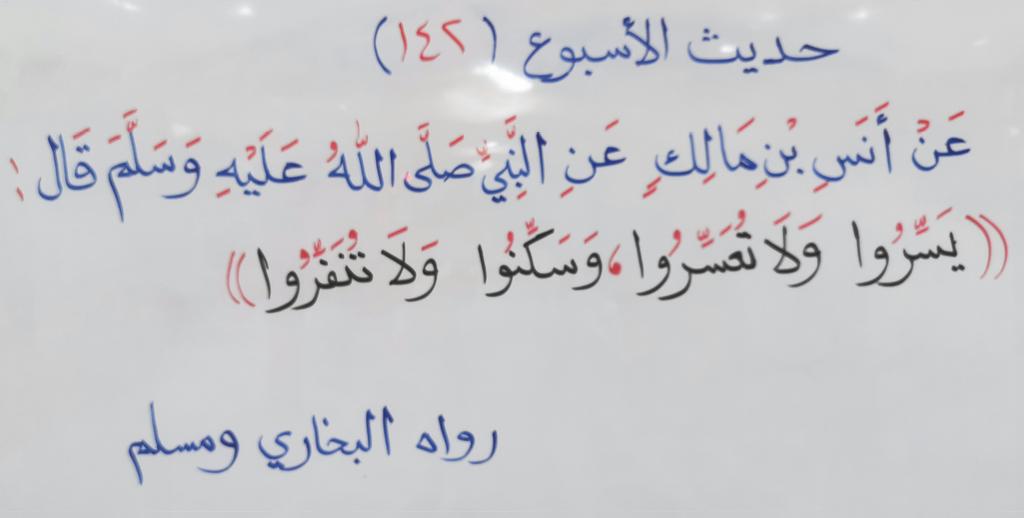 حديث الأسبوع (١٤٢)
عَنْ أَنَسِ بْنِ مَالِكٍ عَنِ النَّبِيِّ صَلَّى اللهُ عَلَيْهِ وَسَلَّمَ قَالَ:
((يَسِّرُوا وَلَا تُعَسِّرُوا، وَسَكِّنُوا وَلَا تُنَفِّرُوا))
رواه البخاري ومسلم